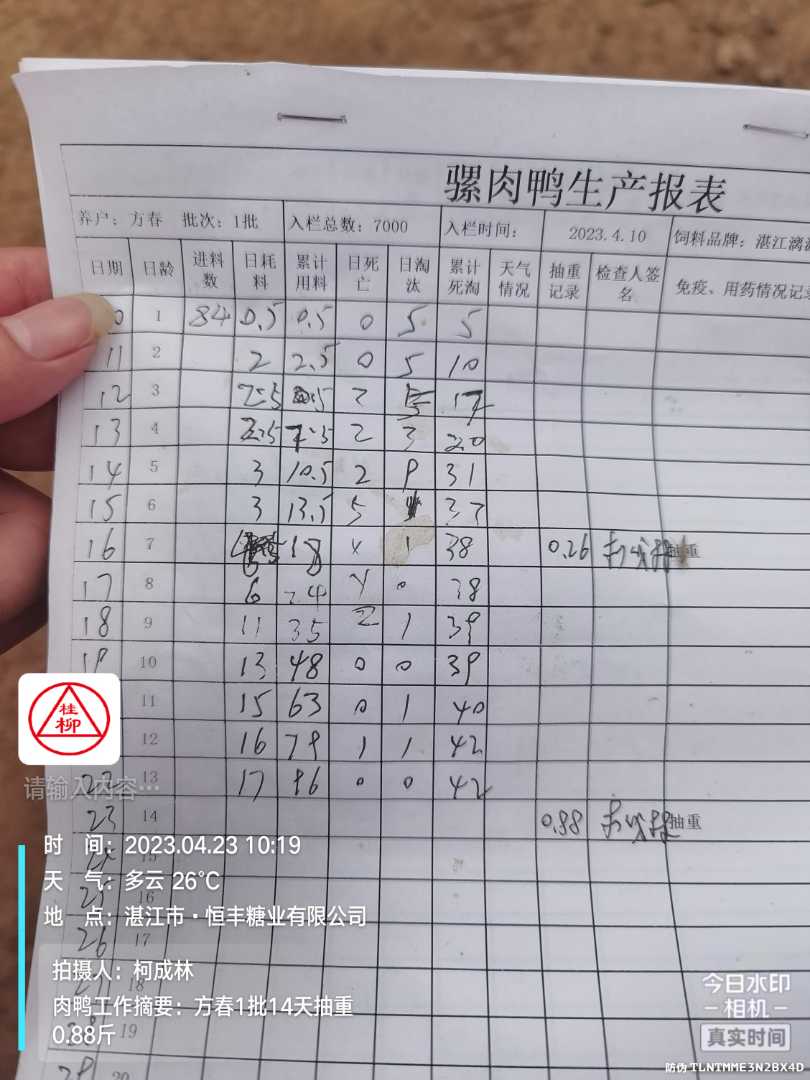 骡肉鸭生产报表
养户：方春 批次：1批 入栏总数：7000 入栏时间： 2023.4.10 饲料品牌：湛江漓源
日期 日龄 进料数 日耗料 累计用料 日死亡 日淘汰 累计死淘 天气情况 抽重记录 检查人签名 免疫、用药情况记录
0 1 84 0.5 0.5 0 5 5
11 2 2 2.5 0 5 10
12 3 2.5 2 5 17
13 4 2.5 7.5 2 3 20
14 5 3 10.5 2 9 31
15 6 3 13.5 5 37
16 7 18 1 38 0.26 抽重
17 8 6 24 0 38
18 9 11 35 1 39
19 10 13 48 0 0 39
11 15 63 0 1 40
12 16 79 1 1 42
22 13 17 96 0 0 42
23 14 0.88 抽重
15
16
26 17
18
19
20
桂柳
请输入内容…
时 间：2023.04.23 10:19
天 气：多云 26℃
地 点：湛江市·恒丰糖业有限公司
拍摄人：柯成林
肉鸭工作摘要：方春1批14天抽重
0.88斤
今日水印
相机
真实时间
防伪 TLNTMME3N2BX4D